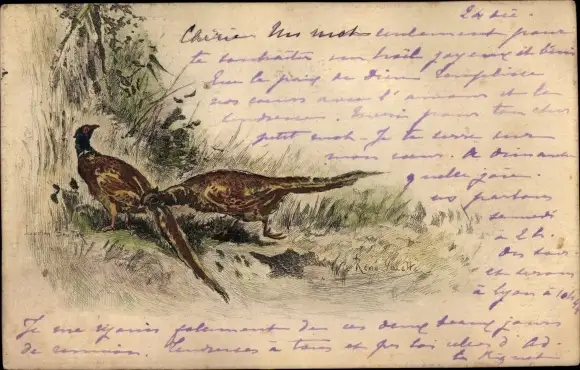 24 déc.
Chérie Un mot seulement pour
te souhaiter un Noël joyeux et béni
Que la paix de Dieu remplisse
nos cœurs avec l'amour et la
tendresse. Merci pour ton cher
petit mot. Je te serre sur
mon cœur. A dimanche
quelle joie.
ns partons
samedi
à 2h.
du soir
et serons
à Lyon à
René Valette
Je me réjouis follement de ces deux beaux jours
de réunion. Tendresses à tous et pr toi celles d'Ad.